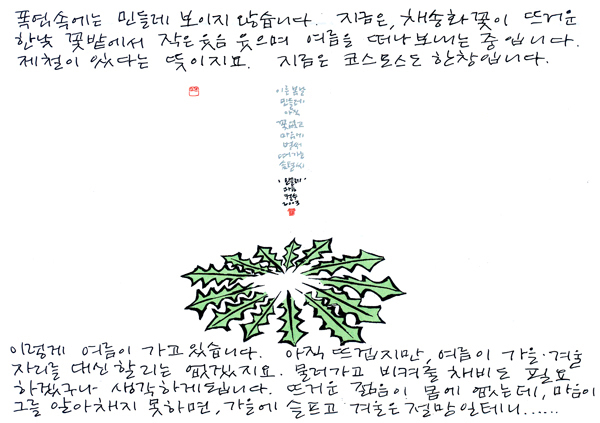 폭염속에는 민들레 보이지 않습니다. 지금은, 채송화꽃이 뜨거운
한낮 꽃밭에서 작은웃음 웃으며 여름을 떠나보내는 중입니다.
제철이 있다는 뜻이지요. 지금은 코스모스도 한창입니다.
이른 봄날
민들레
아직
꽃없고
마음에
벌써
여기저기
민들레
2003
이렇게 여름이 가고있습니다. 아직 뜨겁지만, 여름이 가을·겨울
자리를 대신할리는 없겠지요. 물러가고 비켜줄 채비도 필요
하겠구나 생각하게됩니다. 뜨거운 젊음이 몸에 없는데, 마음이
그를 알아채지 못하면, 가을에 슬프고 겨울은 절망일테니......